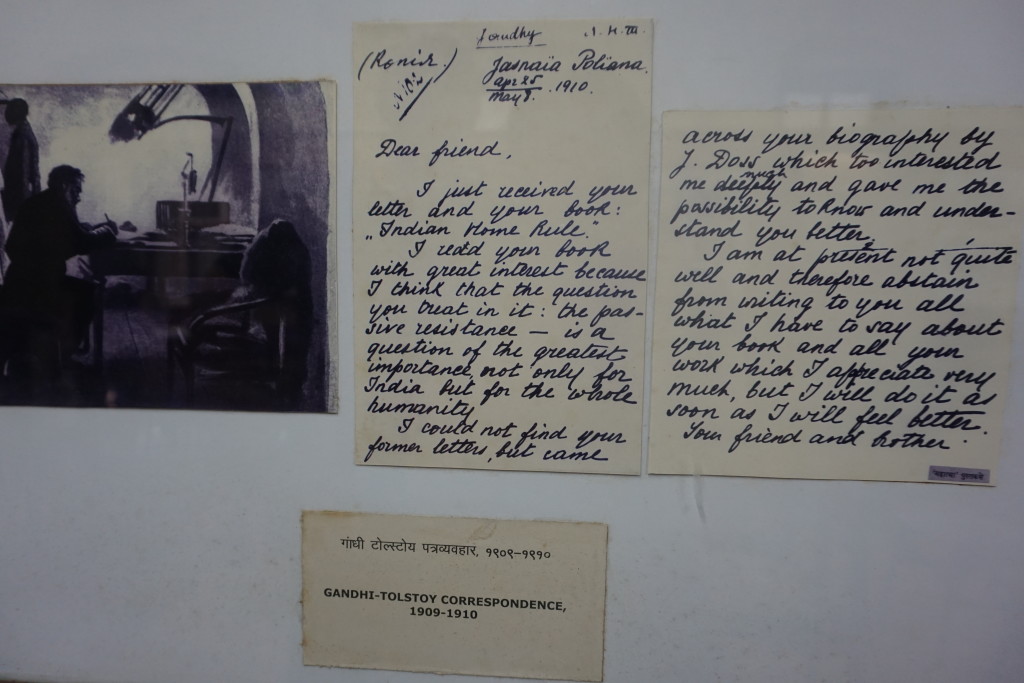 Jasnaïa Poliana.
apr 25
may 8. 1910.
Dear friend,
I just received your
letter and your book:
„Indian Home Rule."
I read your book
with great interest because
I think that the question
you treat in it: the pas-
sive resistance — is a
question of the greatest
importance not only for
India but for the whole
humanity
I could not find your
former letters, but came
across your biography by
J. Doss which too interested
me deeply much and gave me the
possibility to know and under-
stand you better.
I am at present not quite
well and therefore abstain
from writing to you all
what I have to say about
your book and all your
work which I appreciate very
much, but I will do it as
soon as I will feel better.
Your friend and brother.
गांधी टोल्स्टोय पत्रव्यवहार, १९०९–१९१०
GANDHI-TOLSTOY CORRESPONDENCE,
1909-1910